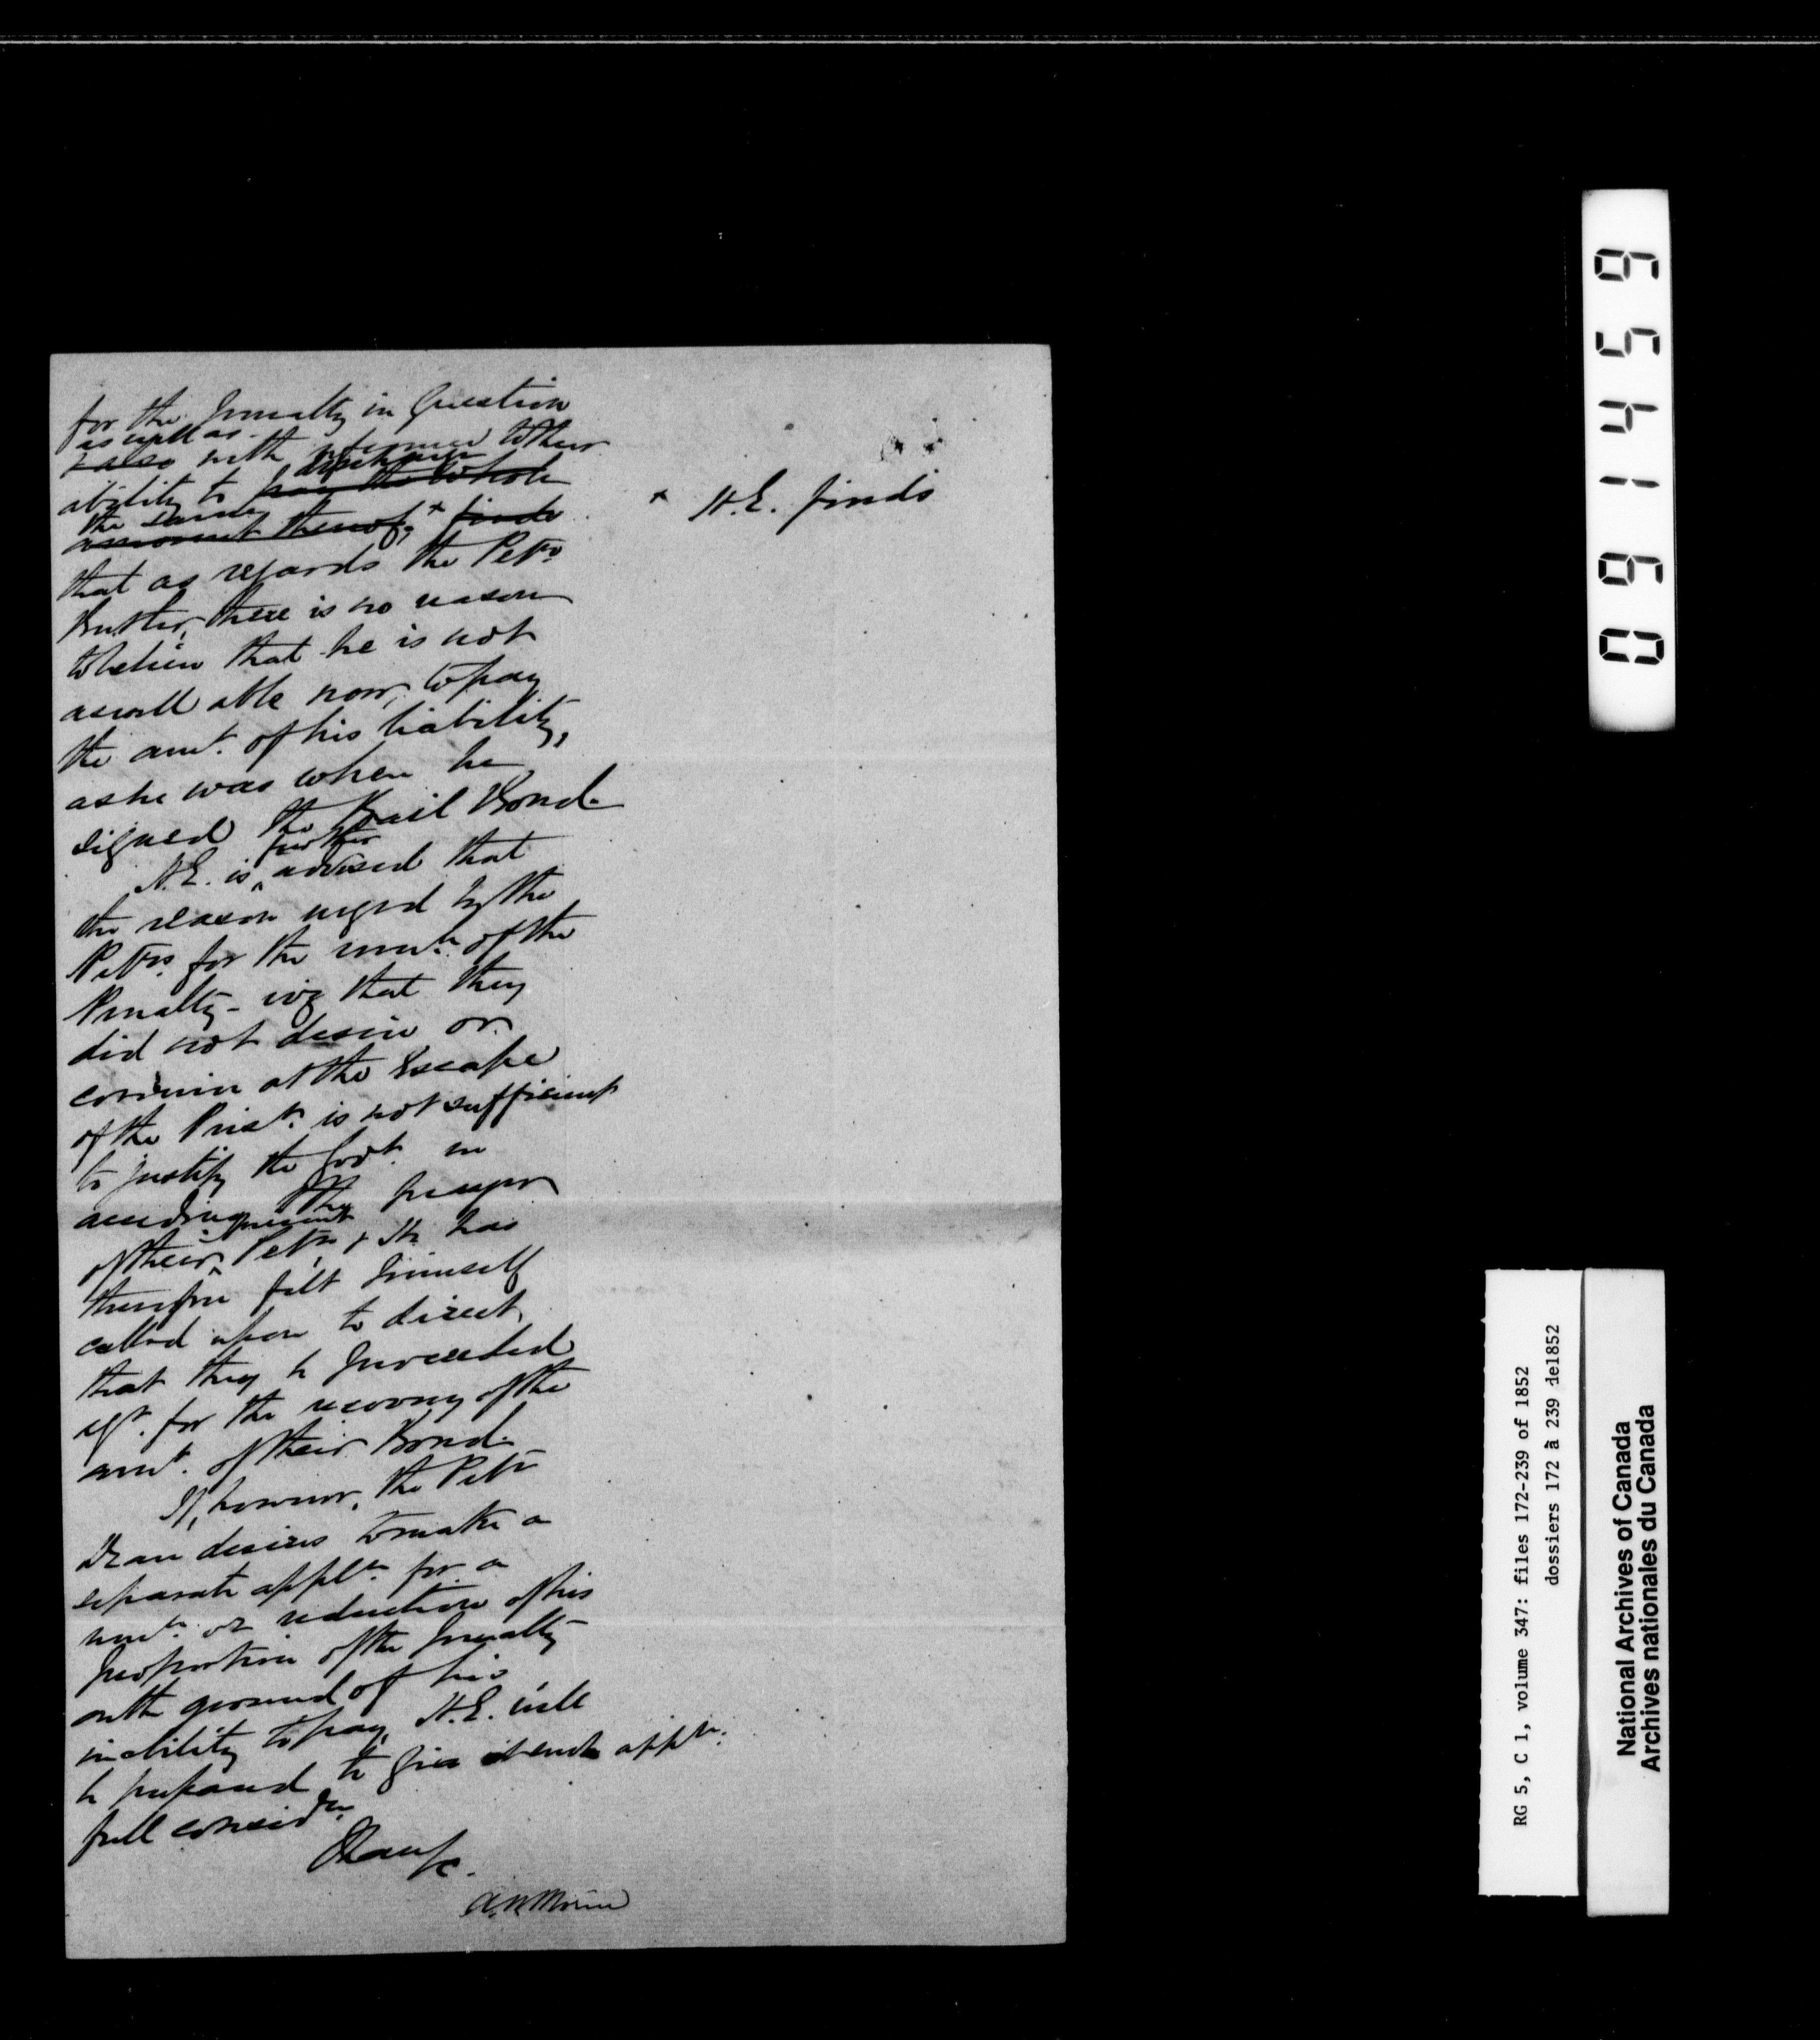 for the penalty in Question
as well as
& also with reference to their
discharge
ability to pay the whole
the same
amount thereof, + finds
+ H.E. finds
that as regards the Petr.
Butler, there is no reason
to believe that he is not
as well able now, to pay
the amt. of his liability,
as he was when he
signed the Bail Bond.
further
H.E. is ^ advised that
the reason urged by the
Petrs. for the remn. of the
Penalty - viz that they
did not desire or
connive at the Escape
of the Prisr. is not sufficient
to justify the Govt. in
acceding to the prayer
present
of their ^ Petn, & He has
therefore felt himself
called upon to direct,
that they be proceeded
agt. for the recovery of the
amt. of their Bond.
If, however, the Petr
Dean desires to make a
separate appln. for a
remn. or reduction of his
proportion of the penalty
on the ground of his
inability to pay, H.E. will
be prepared to give such appln.
full considn.
I have &c.
A.N. Morin
091459
RG 5, C 1, volume 347: files 172-239 of 1852
dossiers 172 à 239 de1852
National Archives of Canada
Archives nationales du Canada